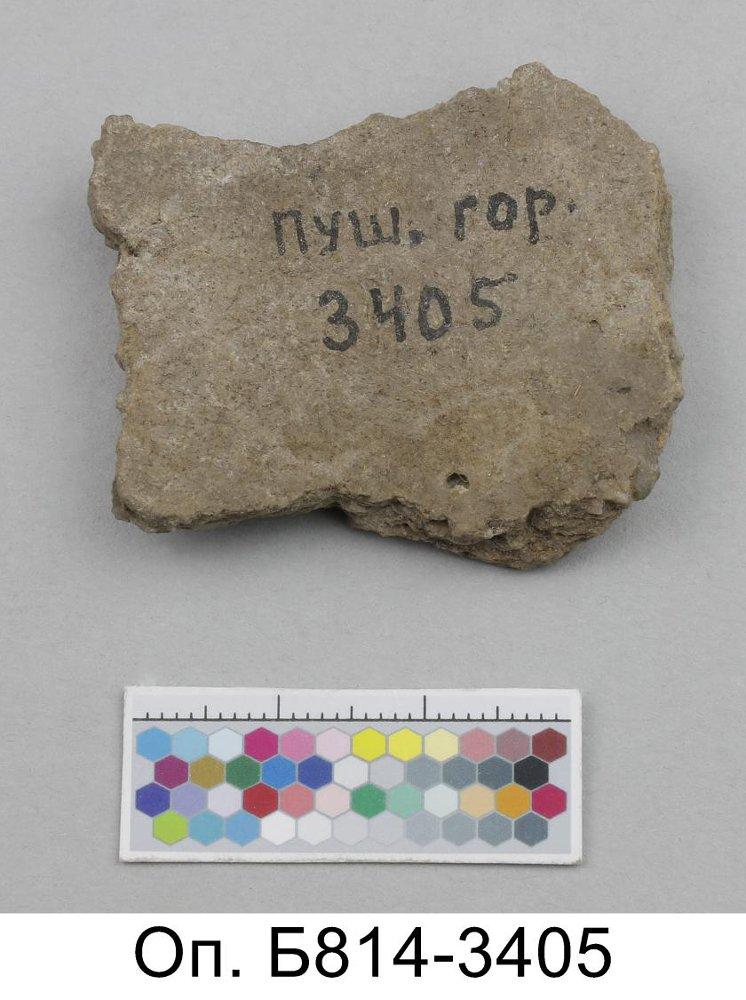 пуш. гор.
3405
Оп. Б814-3405